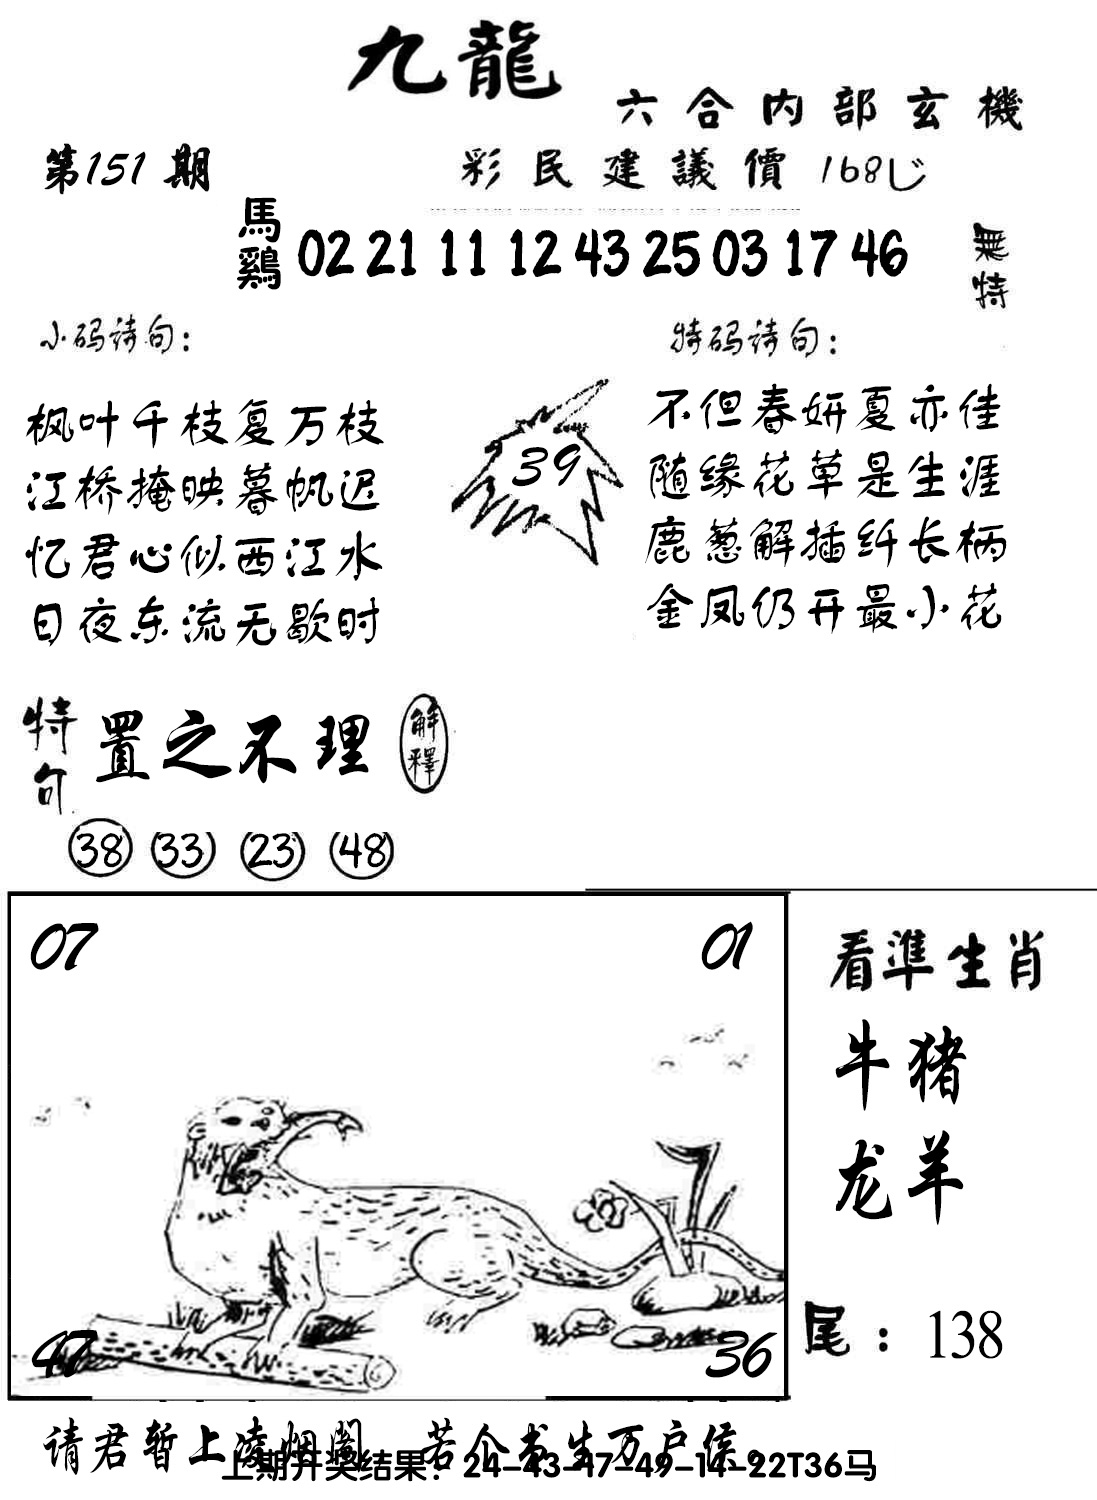 九龍
六合内部玄機
第151期
彩民建議價168
馬鷄 02 21 11 12 43 25 03 17 46 無特
小码诗句：
枫叶千枝复万枝
江桥掩映暮帆迟
忆君心似西江水
日夜东流无歇时
39
特码诗句：
不但春妍夏亦佳
随缘花草是生涯
鹿葱解插纤长柄
金凤仍开最小花
特句 置之不理 解釋
38 33 23 48
07 01
47 36
看準生肖
牛猪
龙羊
尾：138
请君暂上凌烟阁 若个书生万户侯。
上期开奖结果：24-43-47-49-14-22T36马